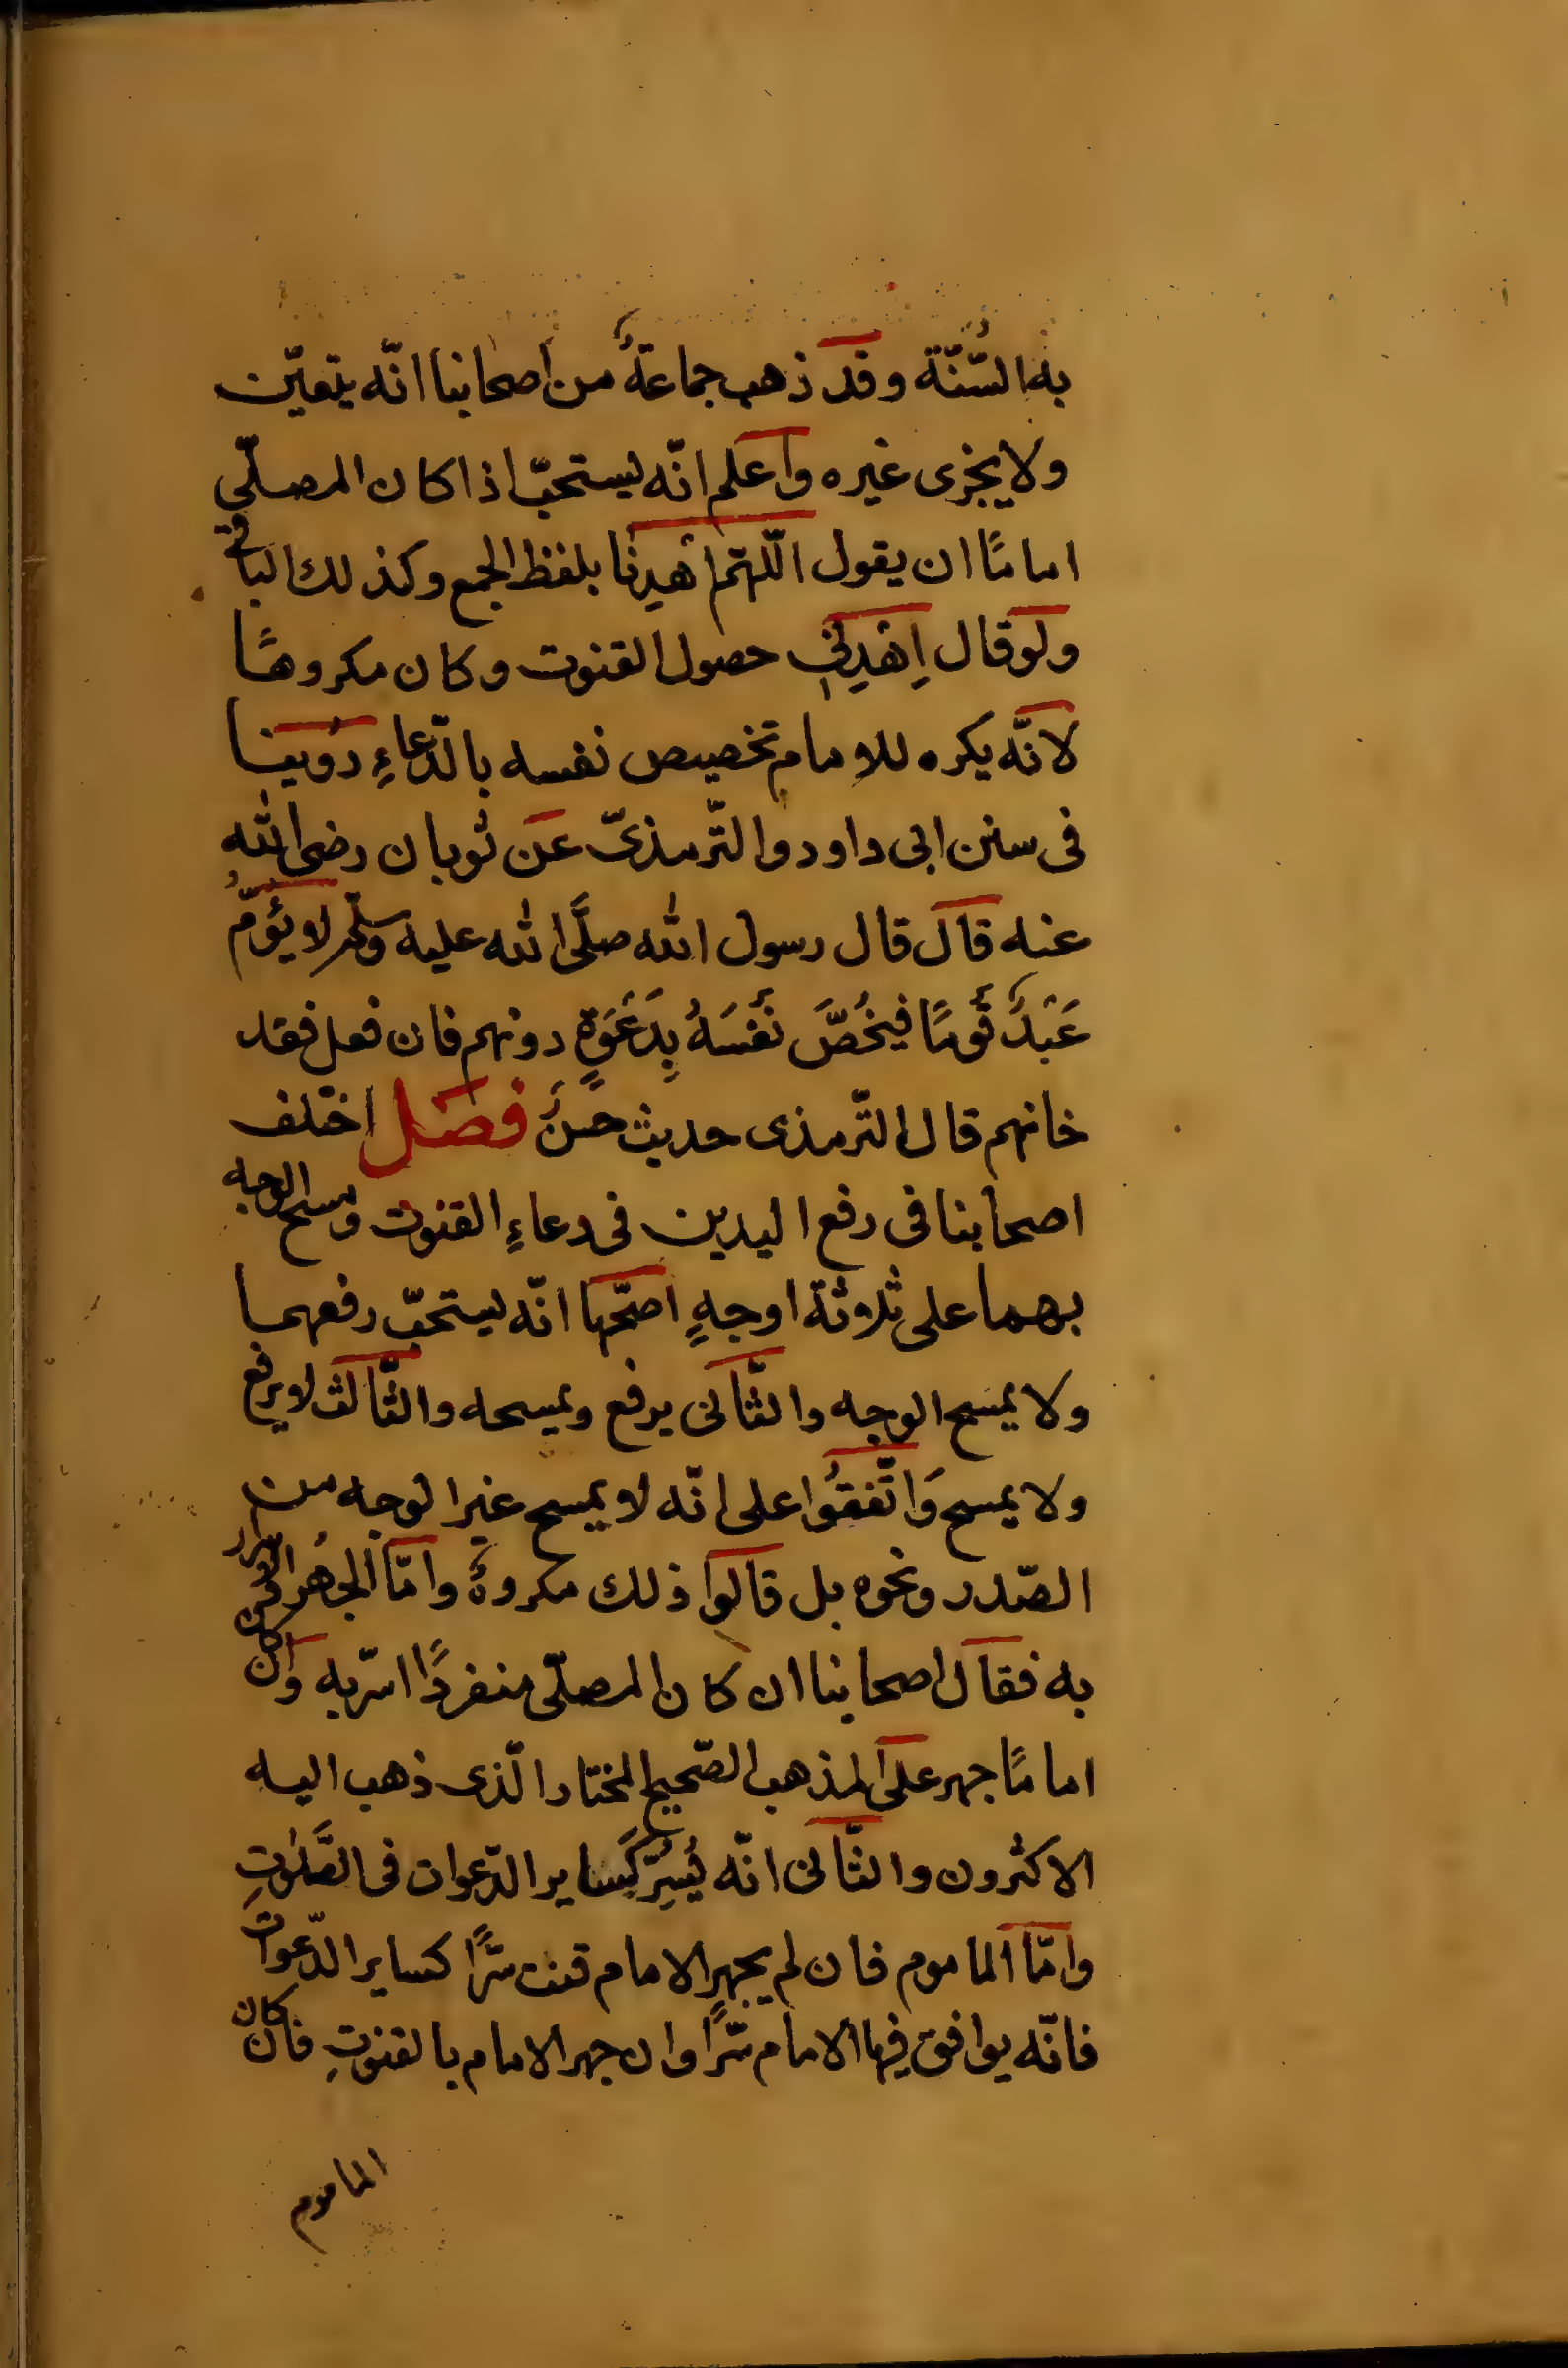 به السّنّة وقد ذهب جماعةٌ من اصحابنا انّه يتعيّن
ولا يجزى غيره واعلم انّه يستحبّ اذا كان المصلّى
امامًا ان يقول اللّهمّ اهدِنا بلفظ الجمع وكذلك الباقى
ولو قال اِهْدِنِى حصول القنوت وكان مكروهًا
لانّه يكره للامام تخصيص نفسه بالدّعاءِ روينا
فى سنن ابى داود والتّرمذىّ عن ثوبان رضى الله
عنه قال قال رسول الله صلَّى الله عليه وسلّم لا يَؤُمُّ
عَبْدٌ قَومًا فيَخُصَّ نَفْسَهُ بِدَعْوَةٍ دونهم فان فعل فقد
خانهم قال التّرمذى حديث حسنٌ فصل اختلف
اصحابنا فى رفع اليدين فى دعاءِ القنوت ومسح الوجه
بهما على ثلاثة اوجهٍ اصحّها انّه يستحبّ رفعهما
ولا يمسح الوجه والثّانى يرفع ويمسحه والثّالث لا يرفع
ولا يمسح وَاتّفقُوا على انّه لا يمسح غير الوجه من
الصّدر ونحوه بل قالوا ذلك مكروهٌ وامّا الجهُر
به فقال اصحابنا ان كان المصلّى منفردًا اسرّ به وان كان
امامًا جهر على المذهب الصّحيح المختار الّذى ذهب اليه
الاكثرون والثّانى انّه يُسِرُّ كَساير الدّعوات فى الصَّلوٰتِ
وامّا الماموم فان لم يجهر الامام قنت سرًّا كساير الدّعوات
فانّه يوافق فيها الامام سّرًا وان جهر الامام بالقنوتِ فان كان
الماموم